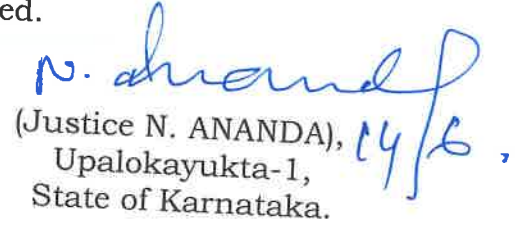 ed.
N. Anand
(Justice N. ANANDA), 14/6,
Upalokayukta-1,
State of Karnataka.